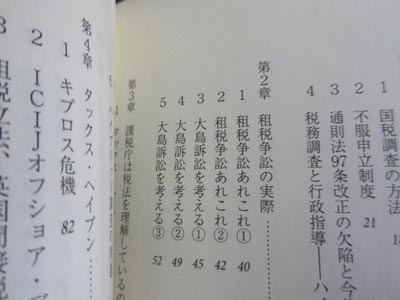 1 国税調査の方法
2 不服申立制度 21
3 通則法97条改正の欠陥と今
4 税務調査と行政指導──ハ
第2章 租税争訟の実際……
1 租税争訟あれこれ① 40
2 租税争訟あれこれ② 42
3 大島訴訟を考える① 45
4 大島訴訟を考える② 49
5 大島訴訟を考える③ 52
第3章 課税庁は税法を理解しているの
第4章 タックス・ヘイブン……
1 キプロス危機 82
2 ICIJオフショア・デ
3 租税立法、英国間接税